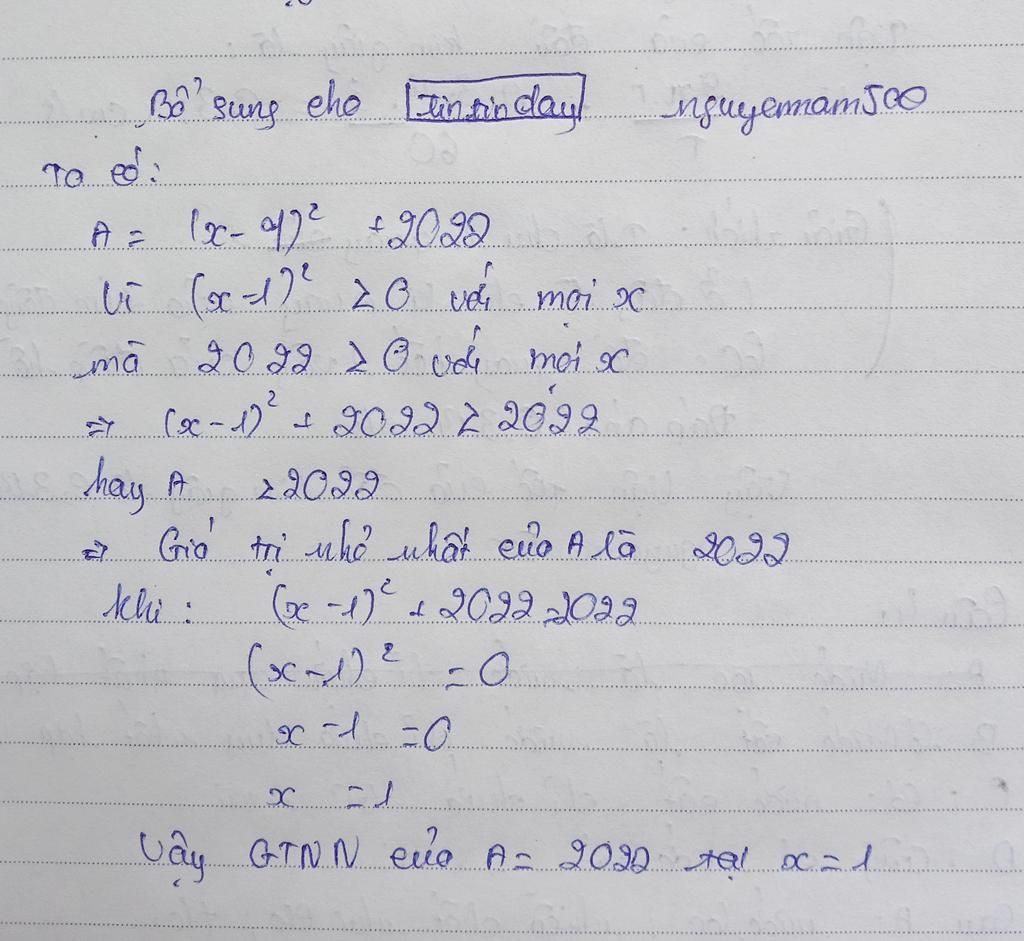 Bổ sung cho tintinday nguyennam500
Ta có:
A = (x - 1)² + 2022
Vì (x - 1)² ≥ 0 với mọi x
mà 2022 ≥ 0 với mọi x
⇒ (x - 1)² + 2022 ≥ 2022
hay A ≥ 2022
⇒ Giá trị nhỏ nhất của A là 2022
khi : (x - 1)² + 2022 = 2022
(x - 1)² = 0
x - 1 = 0
x = 1
Vậy GTNN của A = 2022 tại x = 1